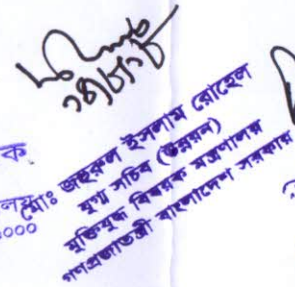 ক
লয়
০০০
মোঃ জহুরুল ইসলাম রোহেল
যুগ্ম সচিব (উন্নয়ন)
মুক্তিযুদ্ধ বিষয়ক মন্ত্রণালয়
গণপ্রজাতন্ত্রী বাংলাদেশ সরকার